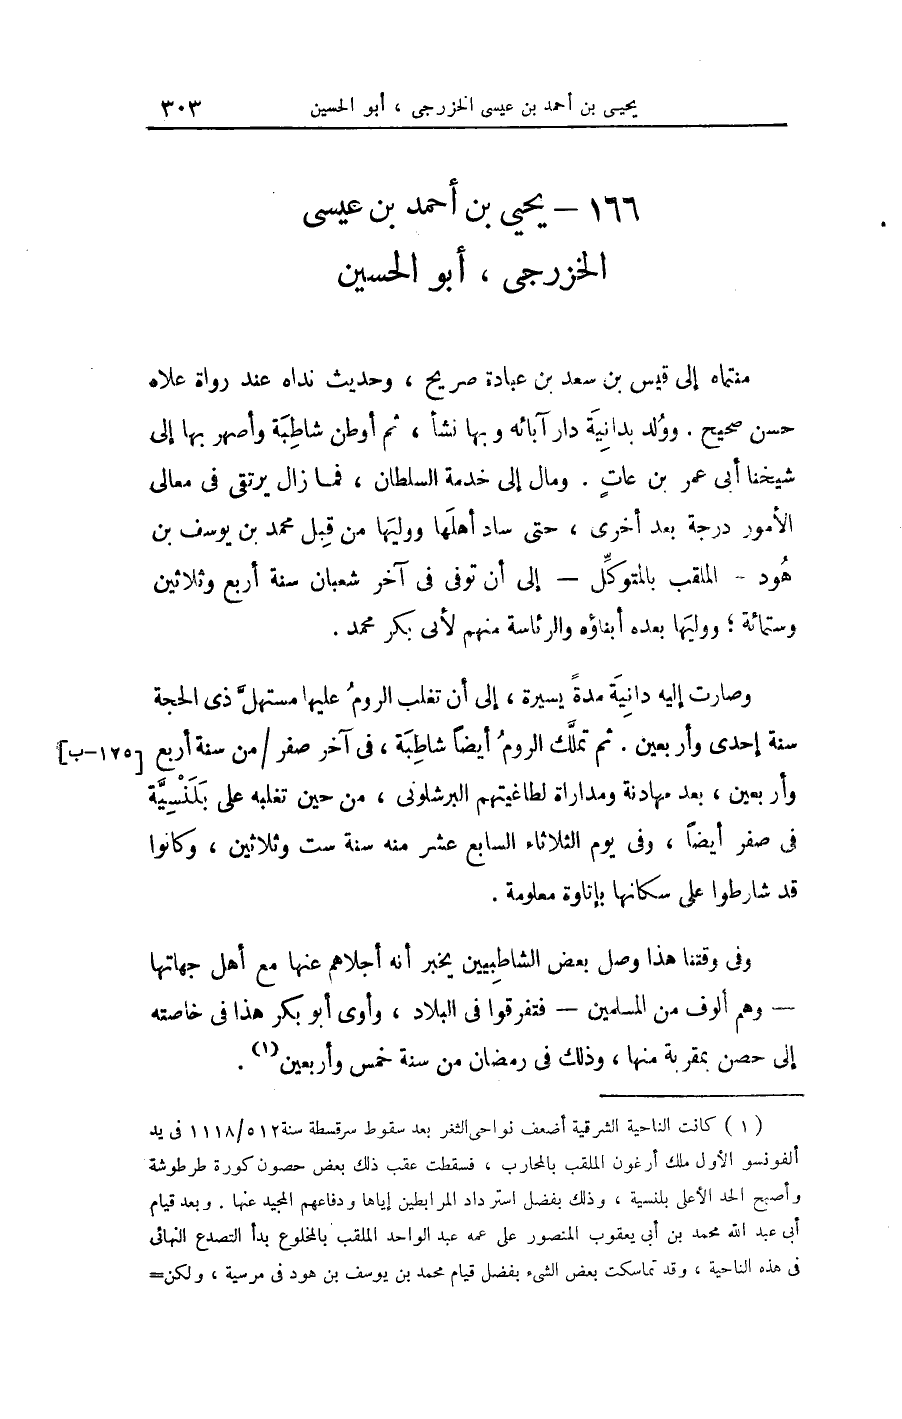 يحيى بن أحمد بن عيسى الخزرجى ، أبو الحسين ٣٠٣
١٦٦ – يحيي بن أحمد بن عيسى
الخزرجى ، أبو الحسين
منتماه إلى قيس بن سعد بن عبادة صريح ، وحديث نداه عند رواة علاه
حسن صحيح . ووُلد بدانِيَة دار آبائه وبها نشأ ، ثم أوطن شاطِبَة وأصهر بها إلى
شيخنا أبى عمر بن عاتٍ . ومال إلى خدمة السلطان ، فما زال يرتقى فى معالى
الأمور درجة بعد أخرى ، حتى ساد أهلَها ووليَها من قِبل محمد بن يوسف بن
هُود - الملقب بالمتوكِّل – إلى أن توفى فى آخر شعبان سنة أربع وثلاثين
وستمائة ؛ ووليَها بعده أبناؤه والرئاسة منهم لأبى بكر محمد .
وصارت إليه دانِيَة مدةً يسيرة ، إلى أن تغلب الرومُ عليها مستهلَّ ذى الحجة
سنة إحدى وأربعين . ثم تملَّك الرومُ أيضاً شاطِبَة ، فى آخر صفر / من سنة أربع [١٢٥–ب]
وأربعين ، بعد مهادنة ومداراة لطاغيتهم البرشلونى ، من حين تغلبه على بَلَنْسِيَّة
فى صفر أيضاً ، وفى يوم الثلاثاء السابع عشر منه سنة ست وثلاثين ، وكانوا
قد شارطوا على سكانها بإتاوة معلومة .
وفى وقتنا هذا وصل بعض الشاطبيين يخبر أنه أجلاهم عنها مع أهل جهاتها
– وهم ألوف من المسلمين – فتفرقوا فى البلاد ، وأوى أبو بكر هذا فى خاصته
إلى حصن بمقربة منها ، وذلك فى رمضان من سنة خمس وأربعين (١) .
( ١ ) كانت الناحية الشرقية أضعف نواحى الثغر بعد سقوط سرقسطة سنة ٥١٢/١١١٨ فى يد
ألفونسو الأول ملك أرغون الملقب بالمحارب ، فسقطت عقب ذلك بعض حصون كورة طرطوشة
وأصبح الحد الأعلى بلنسية ، وذلك بفضل استرداد المرابطين إياها ودفاعهم المجيد عنها . وبعد قيام
أبى عبد الله محمد بن أبى يعقوب المنصور على عمه عبد الواحد الملقب بالمخلوع بدأ التصدع النهائى
فى هذه الناحية ، وقد تماسكت بعض الشىء بفضل قيام محمد بن يوسف بن هود فى مرسية ، ولكن=